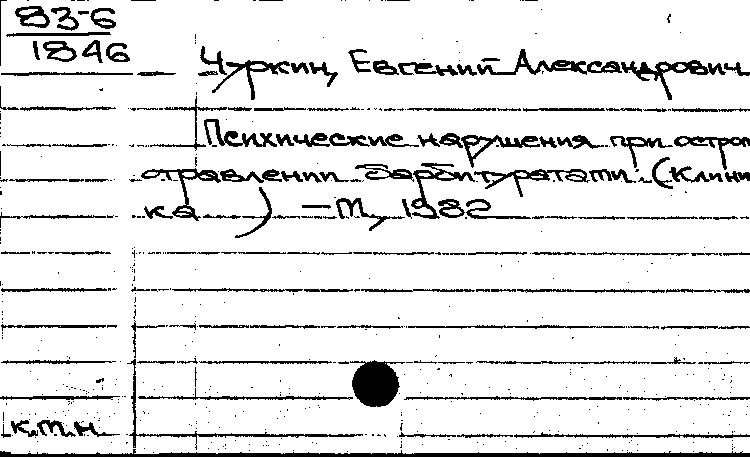 83-6
1846
Чуркин, Евгений Александрович
Психические нарушения при остром
отравлении барбитуратами. (Клини
ка ) — М, 1982
к.т.н.